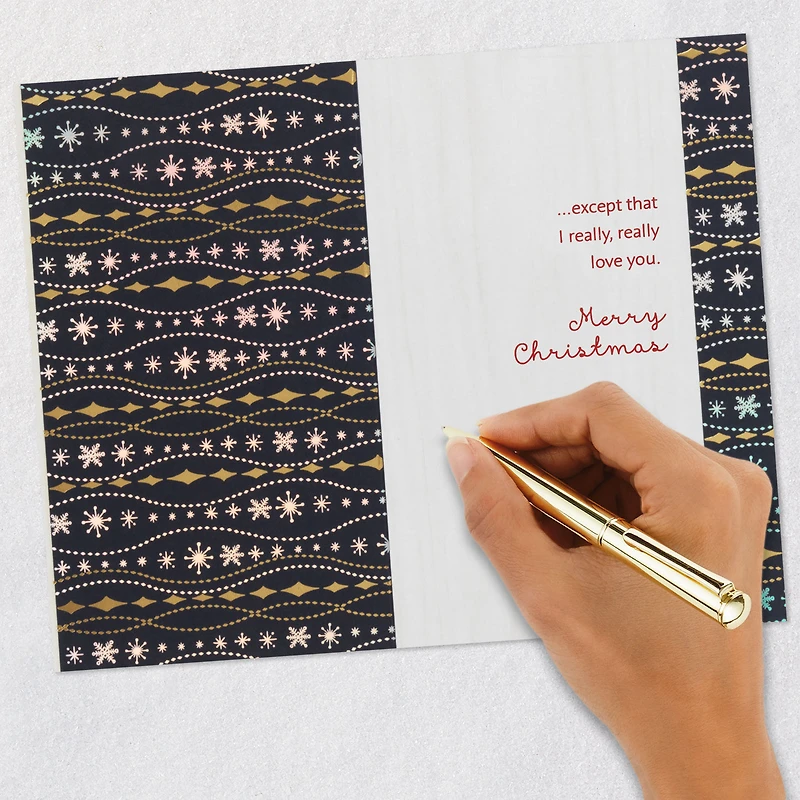 ...except that
I really, really
love you.
Merry
Christmas